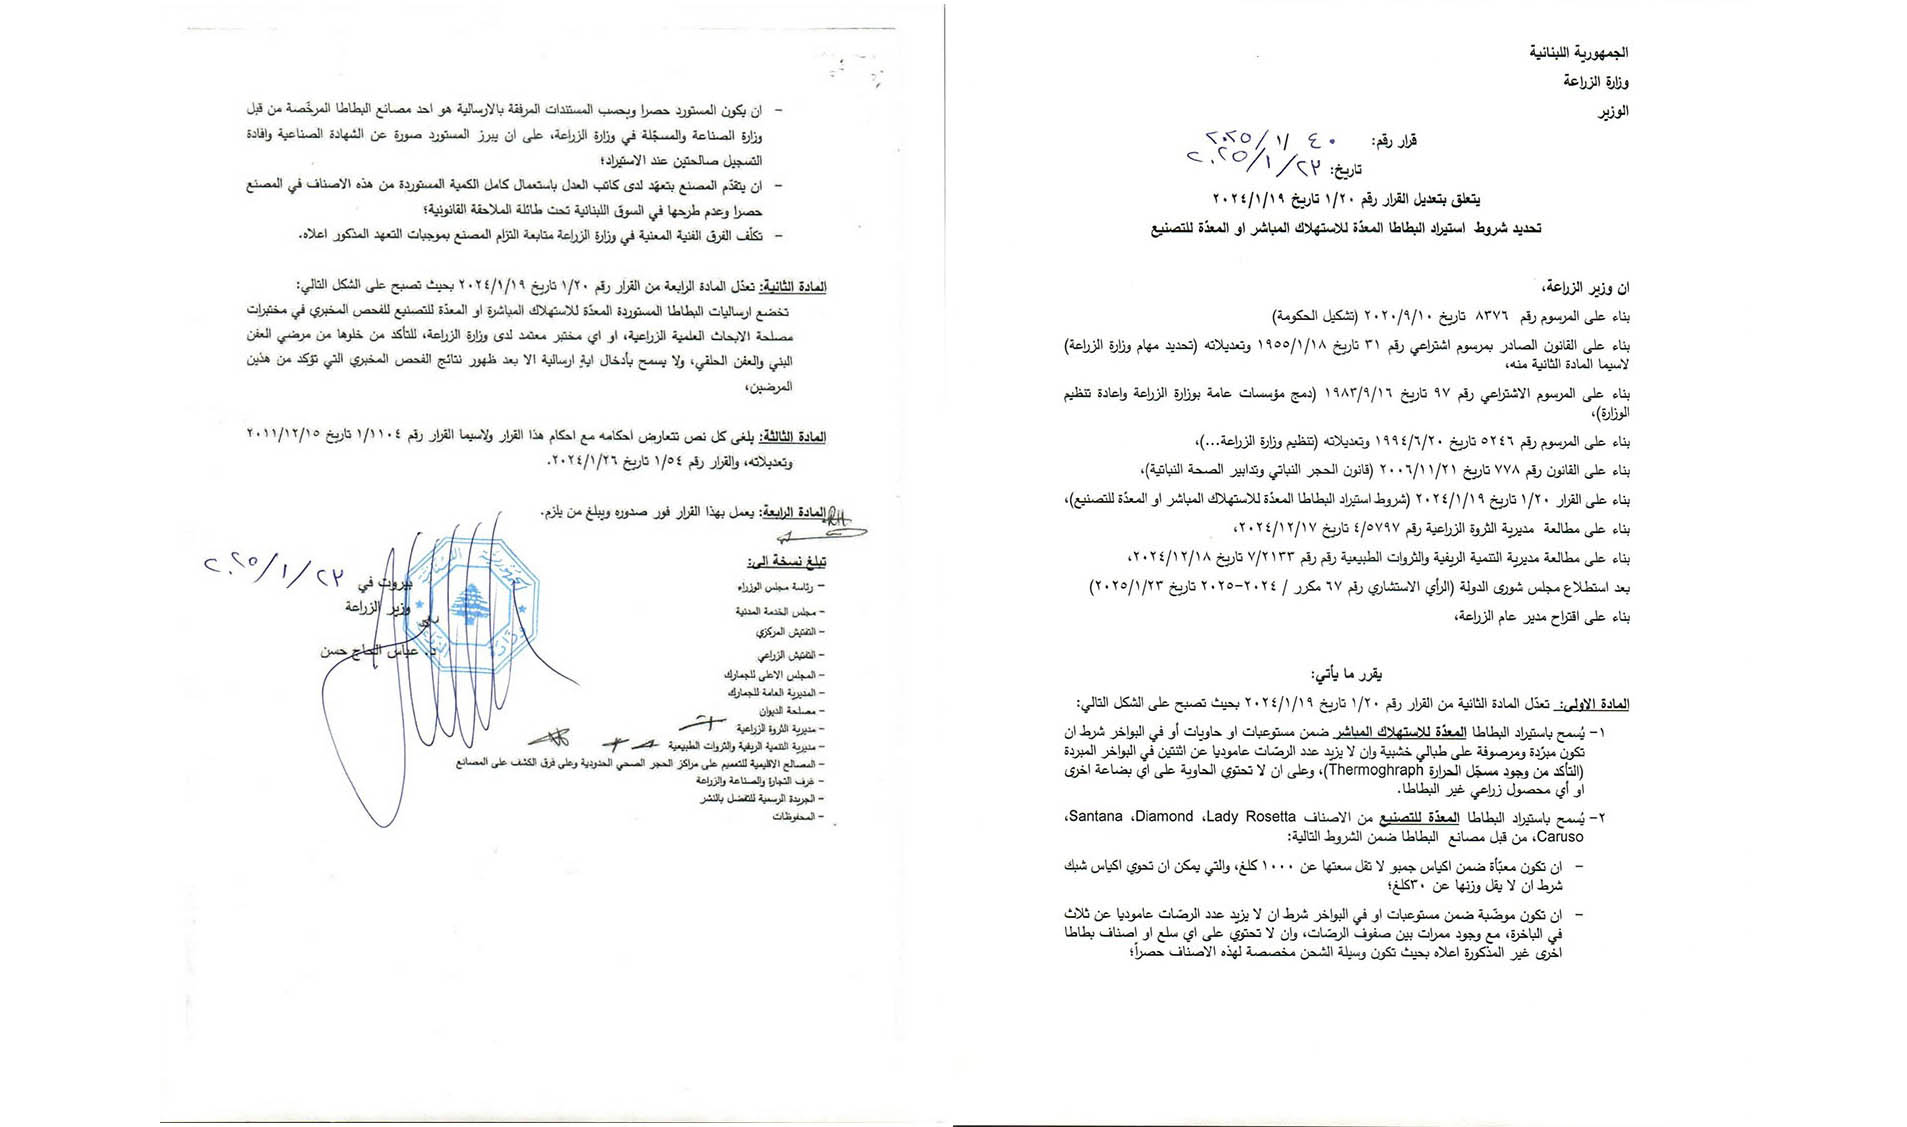 الجمهورية اللبنانية
وزارة الزراعة
الوزير
قرار رقم: ٤٠ /١/ ٢٠٢٥
تاريخ: ٢٣ /١/ ٢٠٢٥
يتعلق بتعديل القرار رقم ١/٢٠ تاريخ ٢٠٢٤/١/١٩
تحديد شروط استيراد البطاطا المعدّة للاستهلاك المباشر او المعدّة للتصنيع
ان وزير الزراعة،
بناء على المرسوم رقم ٨٣٧٦ تاريخ ٢٠٢٠/٩/١٠ (تشكيل الحكومة)
بناء على القانون الصادر بمرسوم اشتراعي رقم ٣١ تاريخ ١٩٥٥/١/١٨ وتعديلاته (تحديد مهام وزارة الزراعة)
لاسيما المادة الثانية منه،
بناء على المرسوم الاشتراعي رقم ٩٧ تاريخ ١٩٨٣/٩/١٦ (دمج مؤسسات عامة بوزارة الزراعة واعادة تنظيم
الوزارة)،
بناء على المرسوم رقم ٥٢٤٦ تاريخ ١٩٩٤/٦/٢٠ وتعديلاته (تنظيم وزارة الزراعة...)،
بناء على القانون رقم ٧٧٨ تاريخ ٢٠٠٦/١١/٢١ (قانون الحجر النباتي وتدابير الصحة النباتية)،
بناء على القرار ١/٢٠ تاريخ ٢٠٢٤/١/١٩ (شروط استيراد البطاطا المعدّة للاستهلاك المباشر او المعدّة للتصنيع)،
بناء على مطالعة مديرية الثروة الزراعية رقم ٤/٥٧٩٧ تاريخ ٢٠٢٤/١٢/١٧،
بناء على مطالعة مديرية التنمية الريفية والثروات الطبيعية رقم رقم ٧/٢١٣٣ تاريخ ٢٠٢٤/١٢/١٨،
بعد استطلاع مجلس شورى الدولة (الرأي الاستشاري رقم ٦٧ مكرر / ٢٠٢٤-٢٠٢٥ تاريخ ٢٠٢٥/١/٢٣)
بناء على اقتراح مدير عام الزراعة،
يقرر ما يأتي:
المادة الاولى: تعدّل المادة الثانية من القرار رقم ١/٢٠ تاريخ ٢٠٢٤/١/١٩ بحيث تصبح على الشكل التالي:
١- يُسمح باستيراد البطاطا المعدّة للاستهلاك المباشر ضمن مستوعبات او حاويات أو في البواخر شرط ان
تكون مبرّدة ومرصوفة على طبالي خشبية وان لا يزيد عدد الرصّات عاموديا عن اثنتين في البواخر المبردة
(التأكد من وجود مسجّل الحرارة Thermoghraph)، وعلى ان لا تحتوي الحاوية على أي بضاعة اخرى
او أي محصول زراعي غير البطاطا.
٢- يُسمح باستيراد البطاطا المعدّة للتصنيع من الاصناف Lady Rosetta، Diamond، Santana،
Caruso، من قبل مصانع البطاطا ضمن الشروط التالية:
- ان تكون معبّأة ضمن اكياس جمبو لا تقل سعتها عن ١٠٠٠ كلغ، والتي يمكن ان تحوي اكياس شبك
شرط ان لا يقل وزنها عن ٣٠كلغ؛
- ان تكون موضّبة ضمن مستوعبات او في البواخر شرط ان لا يزيد عدد الرصّات عاموديا عن ثلاث
في الباخرة، مع وجود ممرات بين صفوف الرصّات، وان لا تحتوي على اي سلع او اصناف بطاطا
اخرى غير المذكورة اعلاه بحيث تكون وسيلة الشحن مخصصة لهذه الاصناف حصراً؛
- ان يكون المستورد حصرا وبحسب المستندات المرفقة بالارسالية هو احد مصانع البطاطا المرخّصة من قبل
وزارة الصناعة والمسجّلة في وزارة الزراعة، على ان يبرز المستورد صورة عن الشهادة الصناعية وافادة
التسجيل صالحتين عند الاستيراد؛
- ان يتقدّم المصنع بتعهّد لدى كاتب العدل باستعمال كامل الكمية المستوردة من هذه الاصناف في المصنع
حصرا وعدم طرحها في السوق اللبنانية تحت طائلة الملاحقة القانونية؛
- تكلّف الفرق الفنية المعنية في وزارة الزراعة متابعة التزام المصنع بموجبات التعهد المذكور اعلاه.
المادة الثانية: تعدّل المادة الرابعة من القرار رقم ١/٢٠ تاريخ ٢٠٢٤/١/١٩ بحيث تصبح على الشكل التالي:
تخضع ارساليات البطاطا المستوردة المعدّة للاستهلاك المباشرة او المعدّة للتصنيع للفحص المخبري في مختبرات
مصلحة الابحاث العلمية الزراعية، او اي مختبر معتمد لدى وزارة الزراعة، للتأكد من خلوها من مرضي العفن
البني والعفن الحلقي، ولا يسمح بأدخال اية ارسالية الا بعد ظهور نتائج الفحص المخبري التي تؤكد من هذين
المرضين،
المادة الثالثة: يلغى كل نص تتعارض احكامه مع احكام هذا القرار ولاسيما القرار رقم ١/١١٠٤ تاريخ ٢٠١١/١٢/١٥
وتعديلاته، والقرار رقم ١/٥٤ تاريخ ٢٠٢٤/١/٢٦.
المادة الرابعة: يعمل بهذا القرار فور صدوره ويبلغ من يلزم.
بيروت في ٢٣ /١/ ٢٠٢٥
وزير الزراعة
د. عباس الحاج حسن
تبلغ نسخة الى:
– رئاسة مجلس الوزراء
– مجلس الخدمة المدنية
– التفتيش المركزي
– التفتيش الزراعي
– المجلس الاعلى للجمارك
– المديرية العامة للجمارك
– مصلحة الديوان
– مديرية الثروة الزراعية
– مديرية التنمية الريفية والثروات الطبيعية
– المصالح الاقليمية للتعميم على مراكز الحجر الصحي الحدودية وعلى فرق الكشف على المصانع
– غرف التجارة والصناعة والزراعة
– الجريدة الرسمية للتفضل بالنشر
– المحفوظات